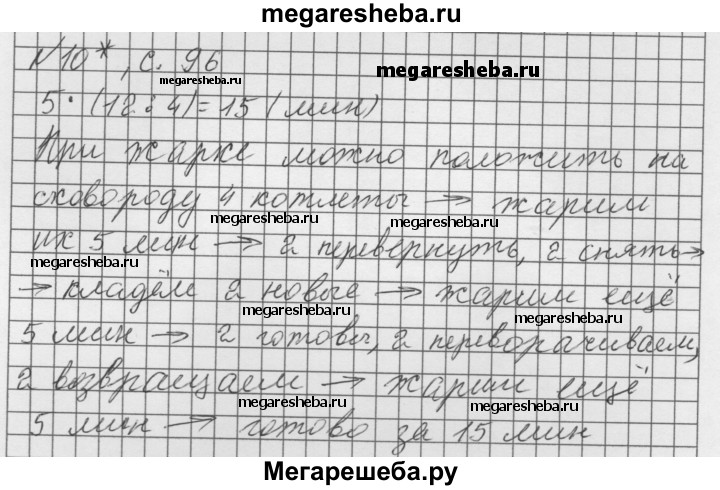 megaresheba.ru
№10*, с. 96
megaresheba.ru
megaresheba.ru
5·(12:4)=15 (мин)
При жарке можно положить на
сковороду 4 котлеты → жарим
megaresheba.ru
megaresheba.ru
их 5 мин → 2 перевернуть, 2 снять →
megaresheba.ru
→ кладём 2 новые → жарим ещё
megaresheba.ru
5 мин → 2 готовы, 2 переворачиваем,
2 возвращаем → жарим ещё
megaresheba.ru
megaresheba.ru
5 мин → готово за 15 мин
Мегарешеба.ру